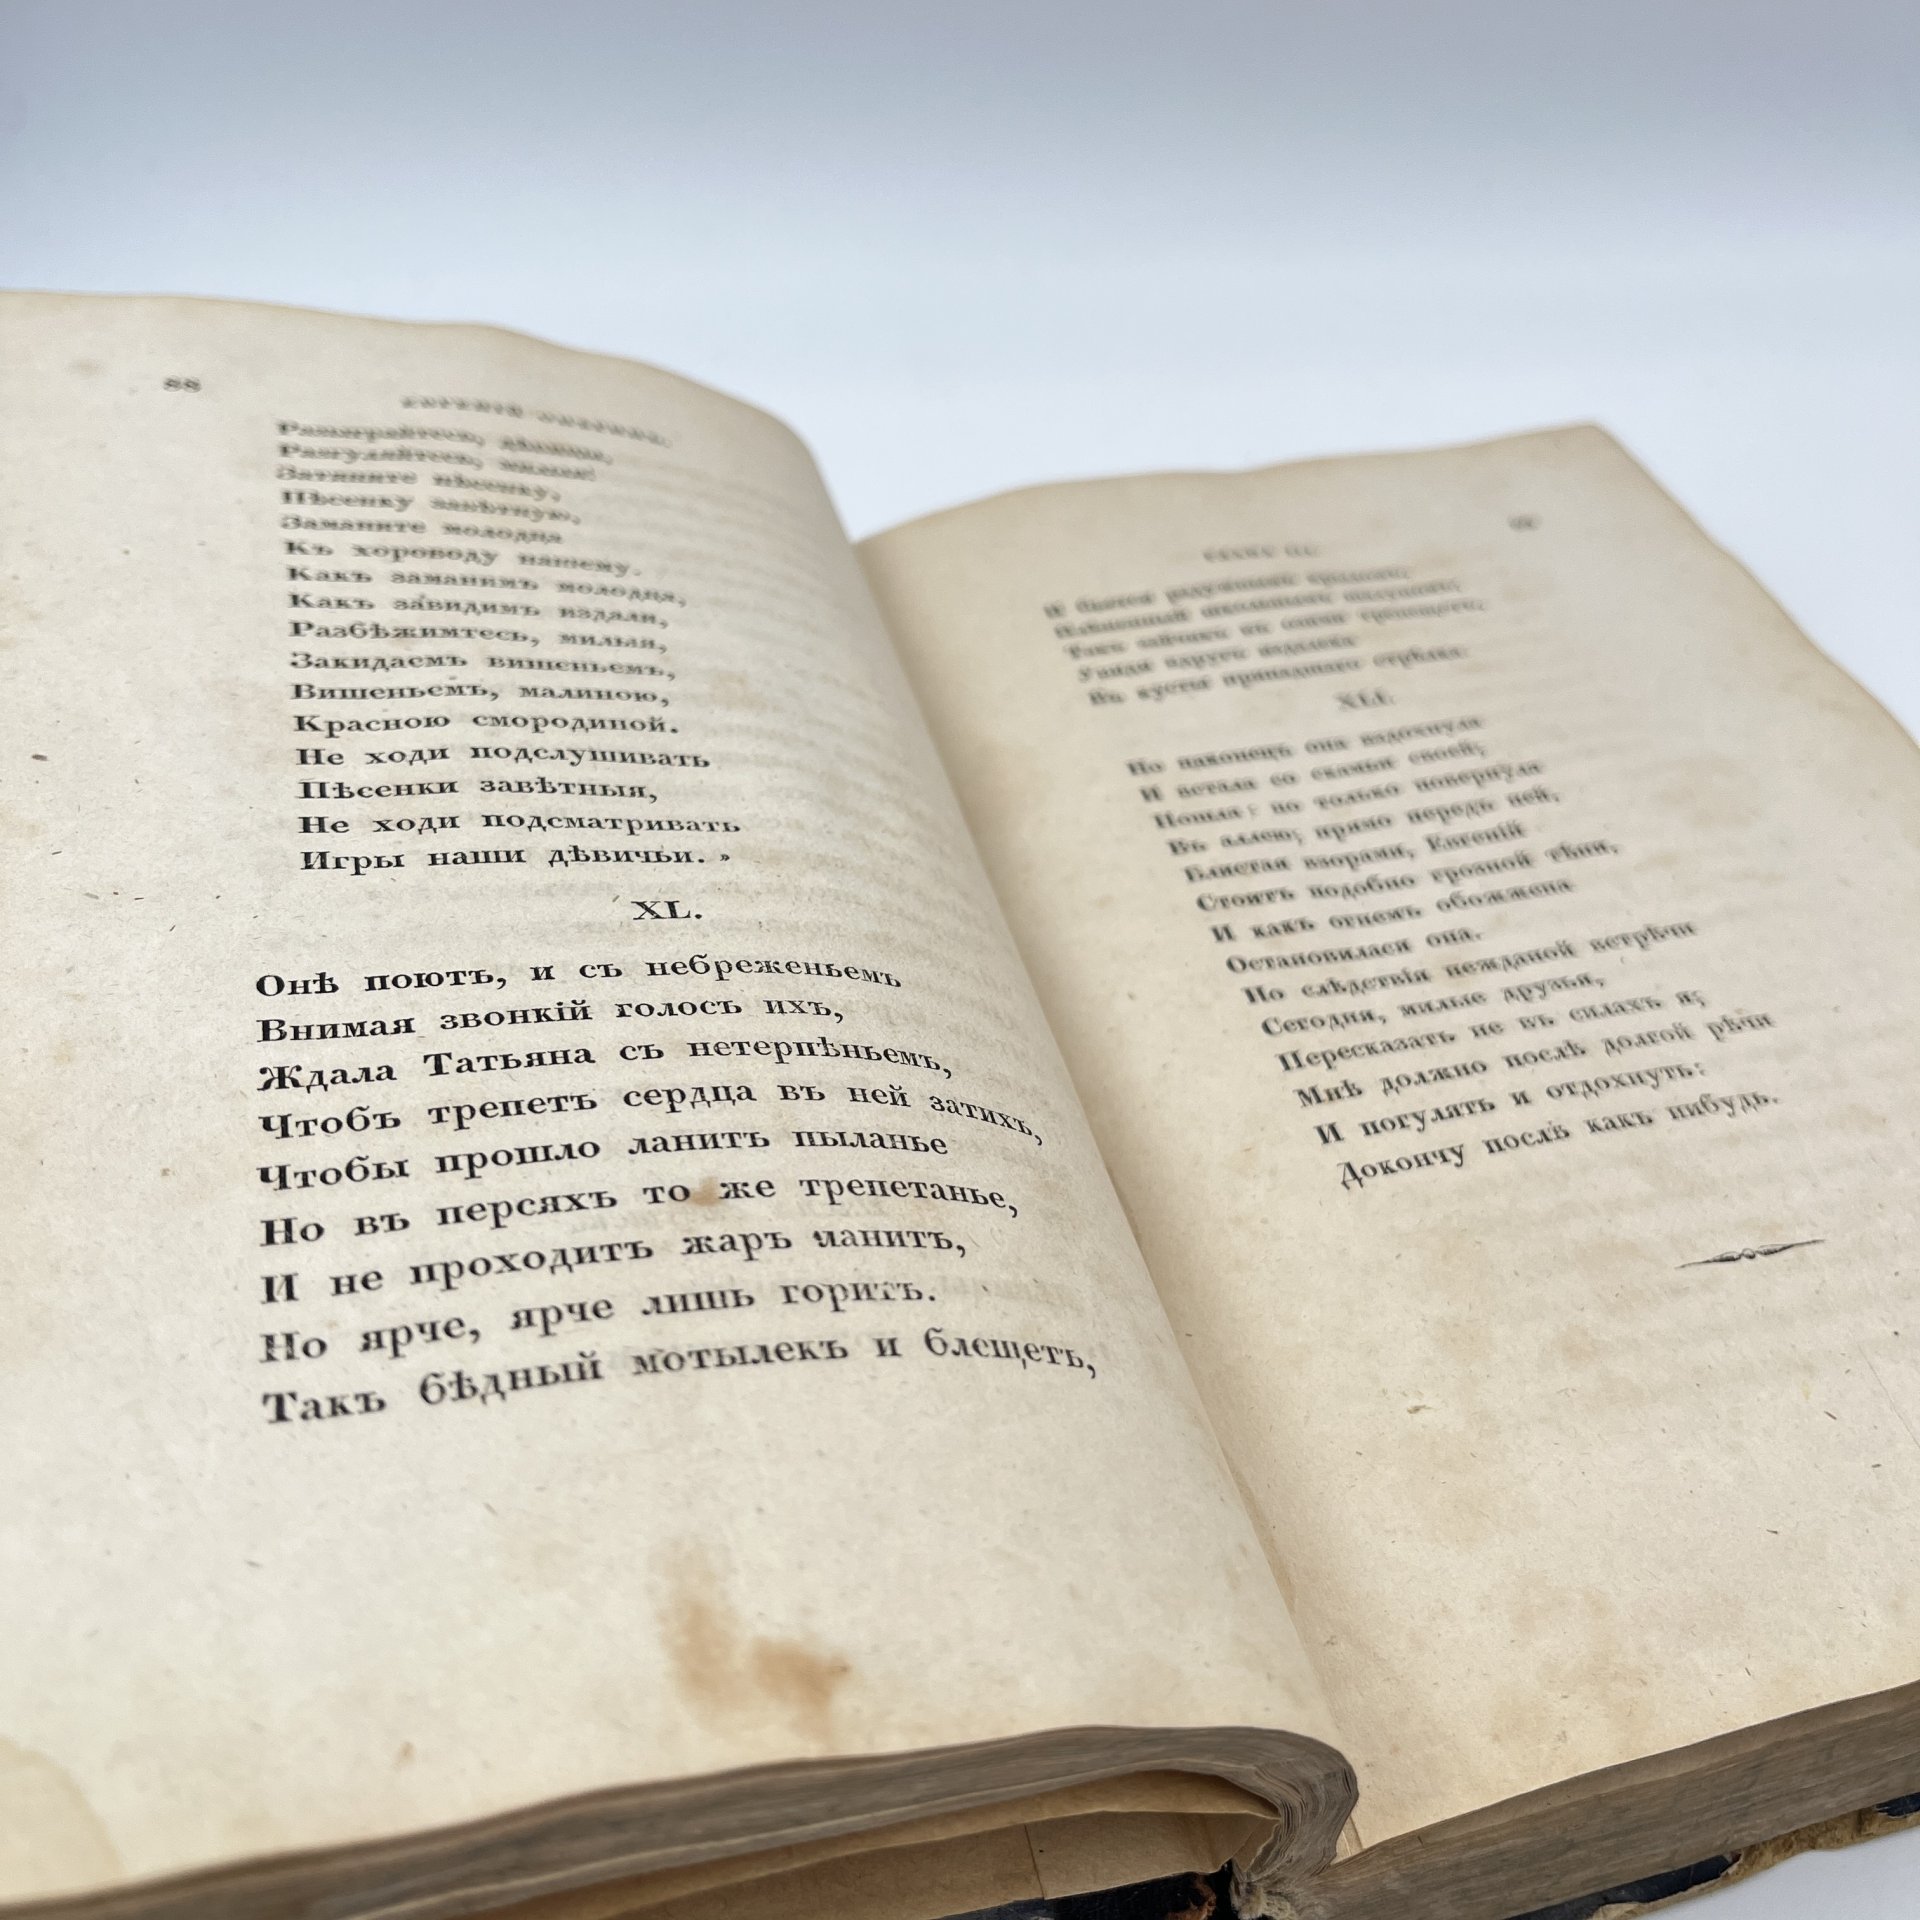 88
ЕВГЕНІЙ ОНѢГИНЪ.
Разыграйтесь, дѣвицы,
Разгуляйтесь, милыя!
Затяните пѣсенку,
Пѣсенку завѣтную,
Заманите молодца
Къ хороводу нашему.
Какъ заманимъ молодца,
Какъ завидимъ издали,
Разбѣжимтесь, милыя,
Закидаемъ вишеньемъ,
Вишеньемъ, малиною,
Красною смородиной.
Не ходи подслушивать
Пѣсенки завѣтныя,
Не ходи подсматривать
Игры наши дѣвичьи. »
XL.
Онѣ поютъ, и съ небреженьемъ
Внимая звонкій голосъ ихъ,
Ждала Татьяна съ нетерпѣньемъ,
Чтобъ трепетъ сердца въ ней затихъ,
Чтобы прошло ланитъ пыланье
Но въ персяхъ то же трепетанье,
И не проходитъ жаръ ланитъ,
Но ярче, ярче лишь горитъ.
Такъ бѣдный мотылекъ и блещетъ,
ГЛАВА III.
И бьется радужнымъ крыломъ,
Плѣненный школьнымъ шалуномъ;
Такъ зайчикъ въ озими трепещетъ,
Увидя вдругъ издалека
Въ кусты припадшаго стрѣлка.
XLI.
Но наконецъ она вздохнула
И встала со скамьи своей;
Пошла: но только повернула
Въ аллею; прямо передъ ней,
Блистая взорами, Евгеній
Стоитъ подобно грозной тѣни,
И какъ огнемъ обожжена
Остановилася она.
Но слѣдствія нежданой встрѣчи
Сегодня, милые друзья,
Пересказать не въ силахъ я;
Мнѣ должно послѣ долгой рѣчи
И погулять и отдохнуть:
Докончу послѣ какъ нибудь.